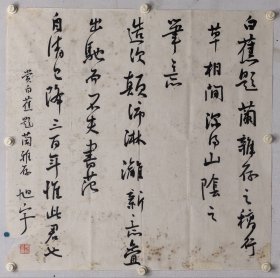 白蕉题兰杂存之稿行
草相间深得山阴之
笔意
造次颠沛淋漓新意叠
出驰而不失书范
自清已降三百年惟此君也
赏白蕉题兰杂存 旭宇